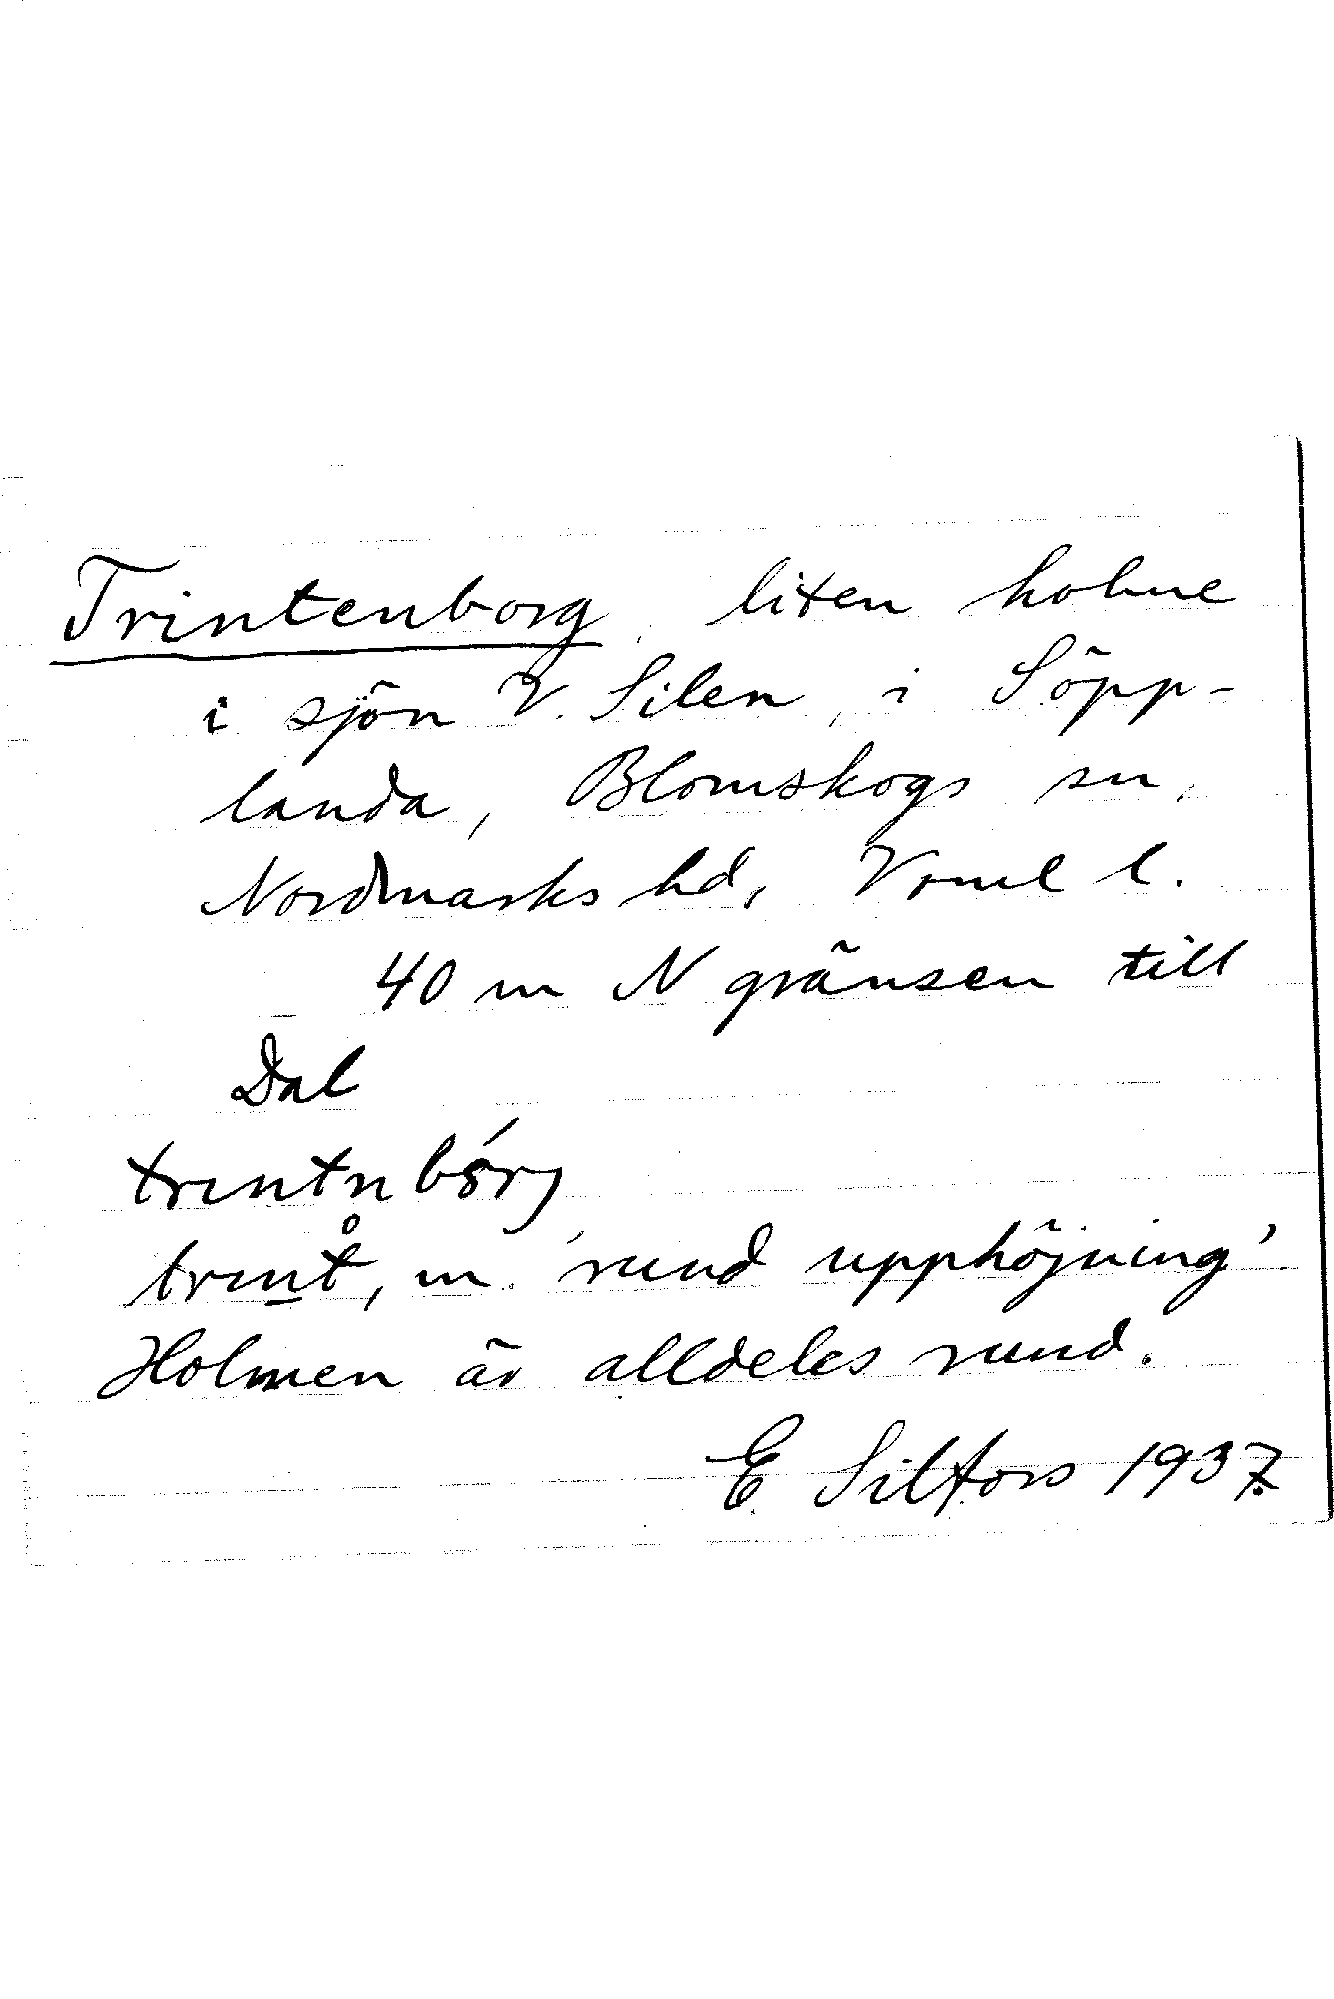 Trintenborg, liten holme
i sjön V. Silen, i Söpp-
landa, Blomskogs sn,
Nordmarks hd, Vrml l.
40 m N gränsen till
Dal
trıntn bórj
trınt, m. 'rund upphöjning'
Holmen är alldeles rund.
E. Silfors 1937.